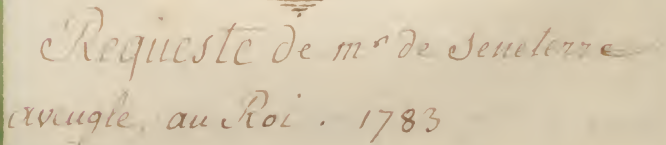 Requeste de mr de Seneterre
aveugle, au Roi. 1783